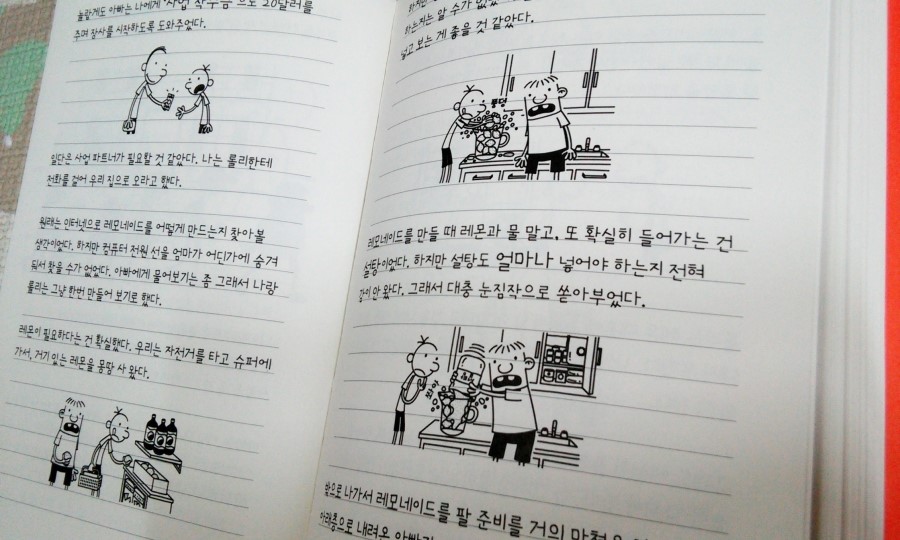 놀랍게도 아빠는 나에게 '사업 착수금'으로 20달러를
주며 장사를 시작하도록 도와주었다.
일단은 사업 파트너가 필요할 것 같았다. 나는 롤리한테
전화를 걸어 우리 집으로 오라고 했다.
원래는 인터넷으로 레모네이드를 어떻게 만드는지 찾아볼
생각이었다. 하지만 컴퓨터 전원 선을 엄마가 어딘가에 숨겨
둬서 찾을 수가 없었다. 아빠에게 물어보기는 좀 그래서 나랑
롤리는 그냥 한번 만들어 보기로 했다.
레몬이 필요하다는 건 확실했다. 우리는 자전거를 타고 슈퍼에
가서, 거기 있는 레몬을 몽땅 사 왔다.
하지만
하는지는 알 수가 없었
넣고 보는 게 좋을 것 같았다.
풍덩
레모네이드를 만들 때 레몬과 물 말고, 또 확실히 들어가는 건
설탕이었다. 하지만 설탕도 얼마나 넣어야 하는지 전혀
감이 안 왔다. 그래서 대충 눈짐작으로 쏟아부었다.
쏴아
앞으로 나가서 레모네이드를 팔 준비를 거의 마쳤을
아래층으로 내려온 아빠가